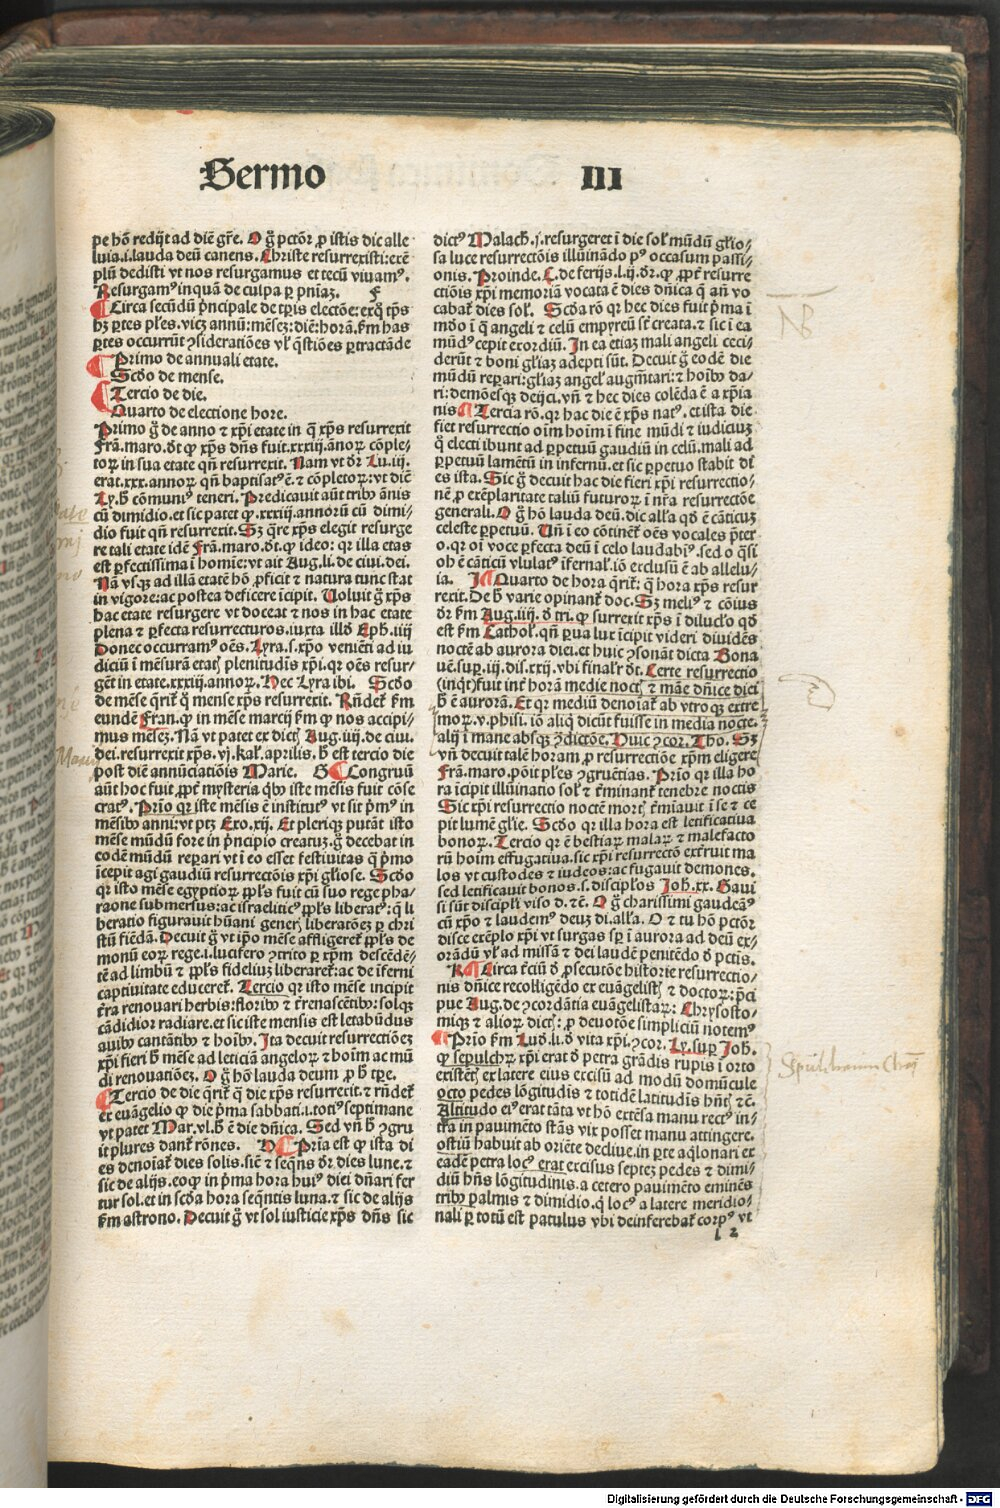 Sermo III
pe hõ redijt ad diē gr̄e. O g̊ pctõr ꝓ istis dic alle
luia.i.lauda deū canens. Christe resurrexisti:exē
plū dedisti vt nos resurgamus et tecū viuamꝰ.
Resurgamꝰ inquā de culpa ꝑ pnīaz. F
Circa secūdū pͥncipale de tꝑis electõe:exq̊ tp̄s
hʒ ꝑtes ples.vicꝫ annū:mēseʒ:diē:horā.ẜm has
ꝑtes occurrūt ꝯsideratiões vl̕ q̄stiões ꝑtractāde
Primo de annuali etate.
Scḋo de mense.
Tercio de die.
Quarto de electione hore.
Primo g̊ de anno ⁊ xp̄i etate in q̄ xp̄s resurrexit
Frā.maro.dt̄ ꝙ xp̄s dn̄s fuit.xxxiij.ānoꝝ cõple-
toꝝ in sua etate qn̄ resurrexit. Nam vt dr̄ Lu.iij.
erat.xxx.annoꝝ qn̄ baptisatꝰ ē.⁊ cõpletoꝝ:vt diē
Ly.h̄ cõmuniꝰ teneri. Predicauit aūt tribꝰ ānis
cū dimidio.et sic patet ꝙ.xxxiij.annorū cū dimi-
dio fuit qn̄ resurrexit. Sꝫ q̄re xp̄s elegit resurge
re tali etate idē Frā.maro.dt̄.ꝙ ideo: qꝛ illa etas
est ꝑfectissima ī homīe:vt ait Aug.li.de ciui.dei.
Nā vsqꝫ ad illā etatē hõ ꝓficit ⁊ natura tunc stat
in vigore:ac postea deficere īcipit. Uoluit g̊ xp̄s
hac etate resurgere vt doceat ⁊ nos in hac etate
plena ⁊ ꝑfecta resurrecturos.iuxta illḋ Eph.iiij
Donec occurramꝰ oēs. Lyra.s.xp̄o veniēti ad iu
diciū ī mēsurā etatꝭ plenitudis xp̄i.qꝛ oēs resur-
gēt in etate.xxxiij.annoꝝ. Hec Lyra ibi. Scḋo
de mēse q̄rit̄ q̊ mense xp̄s resurrexit. Rn̄det̄ ẜm
eundē Fran.ꝙ in mēse marcij ẜm ꝙ nos accipi-
mus mēseʒ. Nā vt patet ex dictꝭ Aug.iiij.de ciui.
dei.resurrexit xp̄s.vj.kal̕.aprilis.h̄ est tercio die
post diē annūciatiõis Marie. G Congruū
aūt hoc fuit ꝓpt̄ mysteria qͥbꝰ iste mēsis fuit cõse
cratꝰ. Prīo qꝛ iste mēsis ē institutꝰ vt sit pͥmꝰ in
mēsibꝰ anni:vt ptꝫ Exo.xij. Et pleriqꝫ putāt isto
mēse mūdū fore in pͥncipio creatuʒ.g̊ decebat in
eodē mūdū reꝑari vt ī eo esset festiuitas q̄ pͥmo
īcepit agi gaudiū resurrectiõis xp̄i gl̄iose. Scḋo
qꝛ isto mēse egyptioꝝ ppl̄s fuit cū suo rege pha-
raone submersus:ac israeliticꝰ ppl̄s liberatꝰ:q̄ li
beratio figurauit hūani generꝭ liberatõeʒ ꝑ chri
stū fiēdā. Decuit g̊ vt ipo mēse affligeret̄ ppl̄s de
monū eoꝝ rege.i.lucifero ꝯtrito ꝑ xp̄m descēdē-
tē ad limbū ⁊ ppl̄s fideliuʒ liberaret̄:ac de īferni
captiuitate educeret̄. Tercio qꝛ isto mēse incipit
t̄ra renouari herbis:floribꝰ ⁊ t̄renascētibꝰ:solqꝫ
cādidior radiare.et sic iste mensis est letabūdus
auibꝰ cantātibꝰ ⁊ hoībꝰ. Ita decuit resurrectiõeʒ
xp̄i fieri h̄ mēse ad leticiā angeloꝝ ⁊ hoīm ac mū
di renouatiõeʒ. O g̊ hõ lauda deum ꝓ h̄ tꝑe.
Tercio de die q̄rit̄ q̊ die xp̄s resurrexit.⁊ rn̄det̄
ex euāgelio ꝙ die pͥma sabbati.i.totiꝰ septimane
vt patet Mar.vl.h̄ ē die dn̄ica. Sed vn̄ h̄ ꝯgru
it plures dant̄ rõnes. H Pria est ꝙ ista di
es denoīat̄ dies solis.sic̄ ⁊ seq̄ns dr̄ dies lune.⁊
sic de alijs.eoꝙ in pͥma hora huiꝰ diei dn̄ari fer
tur sol.et in scḋa hora seq̄ntis luna.⁊ sic de alijs
ẜm astrono. Decuit g̊ vt sol iusticie xp̄s dn̄s sic
dictꝰ Malach.j.resurgeret ī die sol̕ mūdū gl̄io-
sa luce resurrectiõis illūināndo pꝰ occasum passi-
onis. Proinde. C.de ferijs.l.ij.dr̄.ꝙ ꝓpt̄ resurre
ctiõis xp̄i memoriā vocata ē dies dn̄ica q̄ an̄ vo
cabat̄ dies sol̕. Scḋa rõ qꝛ hec dies fuit pͥma ī
mūdo ī q̄ angeli ⁊ celū empyreū st̄ creata.⁊ sic ī ea
mūdꝰ cepit exordiū. In ea etiaʒ mali angeli ceci-
derūt ⁊ boni gl̄iaʒ adepti sūt. Decuit g̊ eodē die
mūdū reꝑari:gl̄iaʒ angel̕ augm̄tari:⁊ hoībꝰ da-
ri:demõesqꝫ deijci.vn̄ ⁊ hec dies colēda ē a xp̄ia
nis Tercia rõ.qꝛ hac die ē xp̄s natꝰ.et ista die
fiet resurrectio oīm hoīm ī fine mūdi ⁊ iudiciuʒ
q̊ electi ibunt ad ꝑpetuū gaudiū in celū.mali ad
ꝑpetuū lamētū in infernū.et sic ꝑpetuo stabit dt̄
es ista. Sic g̊ decuit hac die fieri xp̄i resurrectio-
nē ꝓ exēplaritate taliū futuroꝝ ī nr̄a resurrectõe
generali. O g̊ hõ lauda deū.dic all̕a qḋ ē cāticuʒ
celeste ꝑpetuū. Un̄ ī eo cõtinēt̄ oēs vocales pter
o.qꝛ oī voce ꝑfecta deū ī celo laudabiꝰ.sed o q̄si
oh ē cāticū vlulatꝰ ifernal̕.iō exclusū ē ab allelu-
ia. I Quarto de hora q̄rit̄:q̄ hora xp̄s resur
rexit. De h̄ varie opinant̄ doc. Sꝫ meliꝰ ⁊ cõius
dr̄ ẜm Aug.iiij.ḋ tri.ꝙ surrexit xp̄s ī diluc̄lo qḋ
est ẜm Cathol̕.qn̄ ꝑua lux īcipit videri diuidēs
noctē ab aurora diei.et huic ꝯsonāt dicta Bona
uē.suꝑ.iij.dis.xxij.vbi finalr̄ dt̄. Certe resurrectio
(inqͥt)fuit int̄ horā medie noctꝭ ⁊ māe dn̄ice diei
h̄ ē aurorā. Et qꝛ mediū denoīat̄ ab vtroqꝫ extre
moꝝ.v.phisi. iō aliq̄ dicūt fuisse in media nocte.
alij ī mane absqꝫ ꝯdictõe. Huic ꝯcor. Tho. Sꝫ
vn̄ decuit talē horam ꝓ resurrectiõe xp̄m eligere
Frā.maro.põit ples ꝯgruētias. Prīo qꝛ illa ho
ra īcipit illūinatio sol̕ ⁊ t̄minant̄ tenebre noctis
Sic xp̄i resurrectio noctē mortꝭ t̄miauit ī se ⁊ ce
pit lumē gl̄ie. Scḋo qꝛ illa hora est letificatiua
bonoꝝ. Tercio qꝛ ē bestiaꝝ malaꝝ ⁊ malefacto
rū hoīm effugatiua.sic xp̄i resurrectõ ext̄ruit ma
los vt custodes ⁊ iudeos:ac fugauit demones.
sed letificauit bonos.s.discipl̕os Joh.xx. Gaui
si sūt discipl̕i viso d.⁊c̄. O g̊ charissimi gaudeāꝰ
cū xp̄o ⁊ laudemꝰ deuʒ di.all̕a. O ⁊ tu hõ pctõr
disce exēplo xp̄i vt surgas sꝑ ī aurora ad deū ex-
orādū vl̕ ad missā ⁊ dei laudē penitēdo ḋ pctis.
K Circa t̄ciū ḋ ꝓsecutõe historie resurrectio-
nis dn̄ice recolligēdo ex euāgelistꝭ ⁊ doctoꝝ:p̄ci
pue Aug.de ꝯcordātia euāgelistaꝝ: Chrysosto-
miqꝫ ⁊ alioꝝ dictꝭ:ꝓ deuotõe simpliciū notemꝰ
Prīo ẜm Lud̕.li.ḋ vita xp̄i.ꝯcor. Ly.suꝑ Joh.
ꝙ sepulchꝝ xp̄i erat ḋ petra grādis rupis ī orto
existētꝭ ex latere eius excisū ad modū domūcule
octo pedes lõgitudis ⁊ totidē latitudis hn̄tꝭ ⁊c̄.
Altitudo eiꝰ erat tāta vt hõ extēsa manu rectꝰ in-
tra in pauimēto stās vix posset manu attingere.
ostiū habuit ab oriēte decliue.in ꝑte aq̊lonari ex
eadē petra locꝰ erat excisus septeʒ pedes ⁊ dimi-
diū hn̄s lõgitudinis.a cetero pauimēto eminēs
tribꝰ palmis ⁊ dimidio.q̄ locꝰ a latere meridio-
nali ꝑ totū est patulus vbi deinferebat̄ corpꝰ vt
l 2
NB
Digitalisierung gefördert durch die Deutsche Forschungsgemeinschaft - DFG